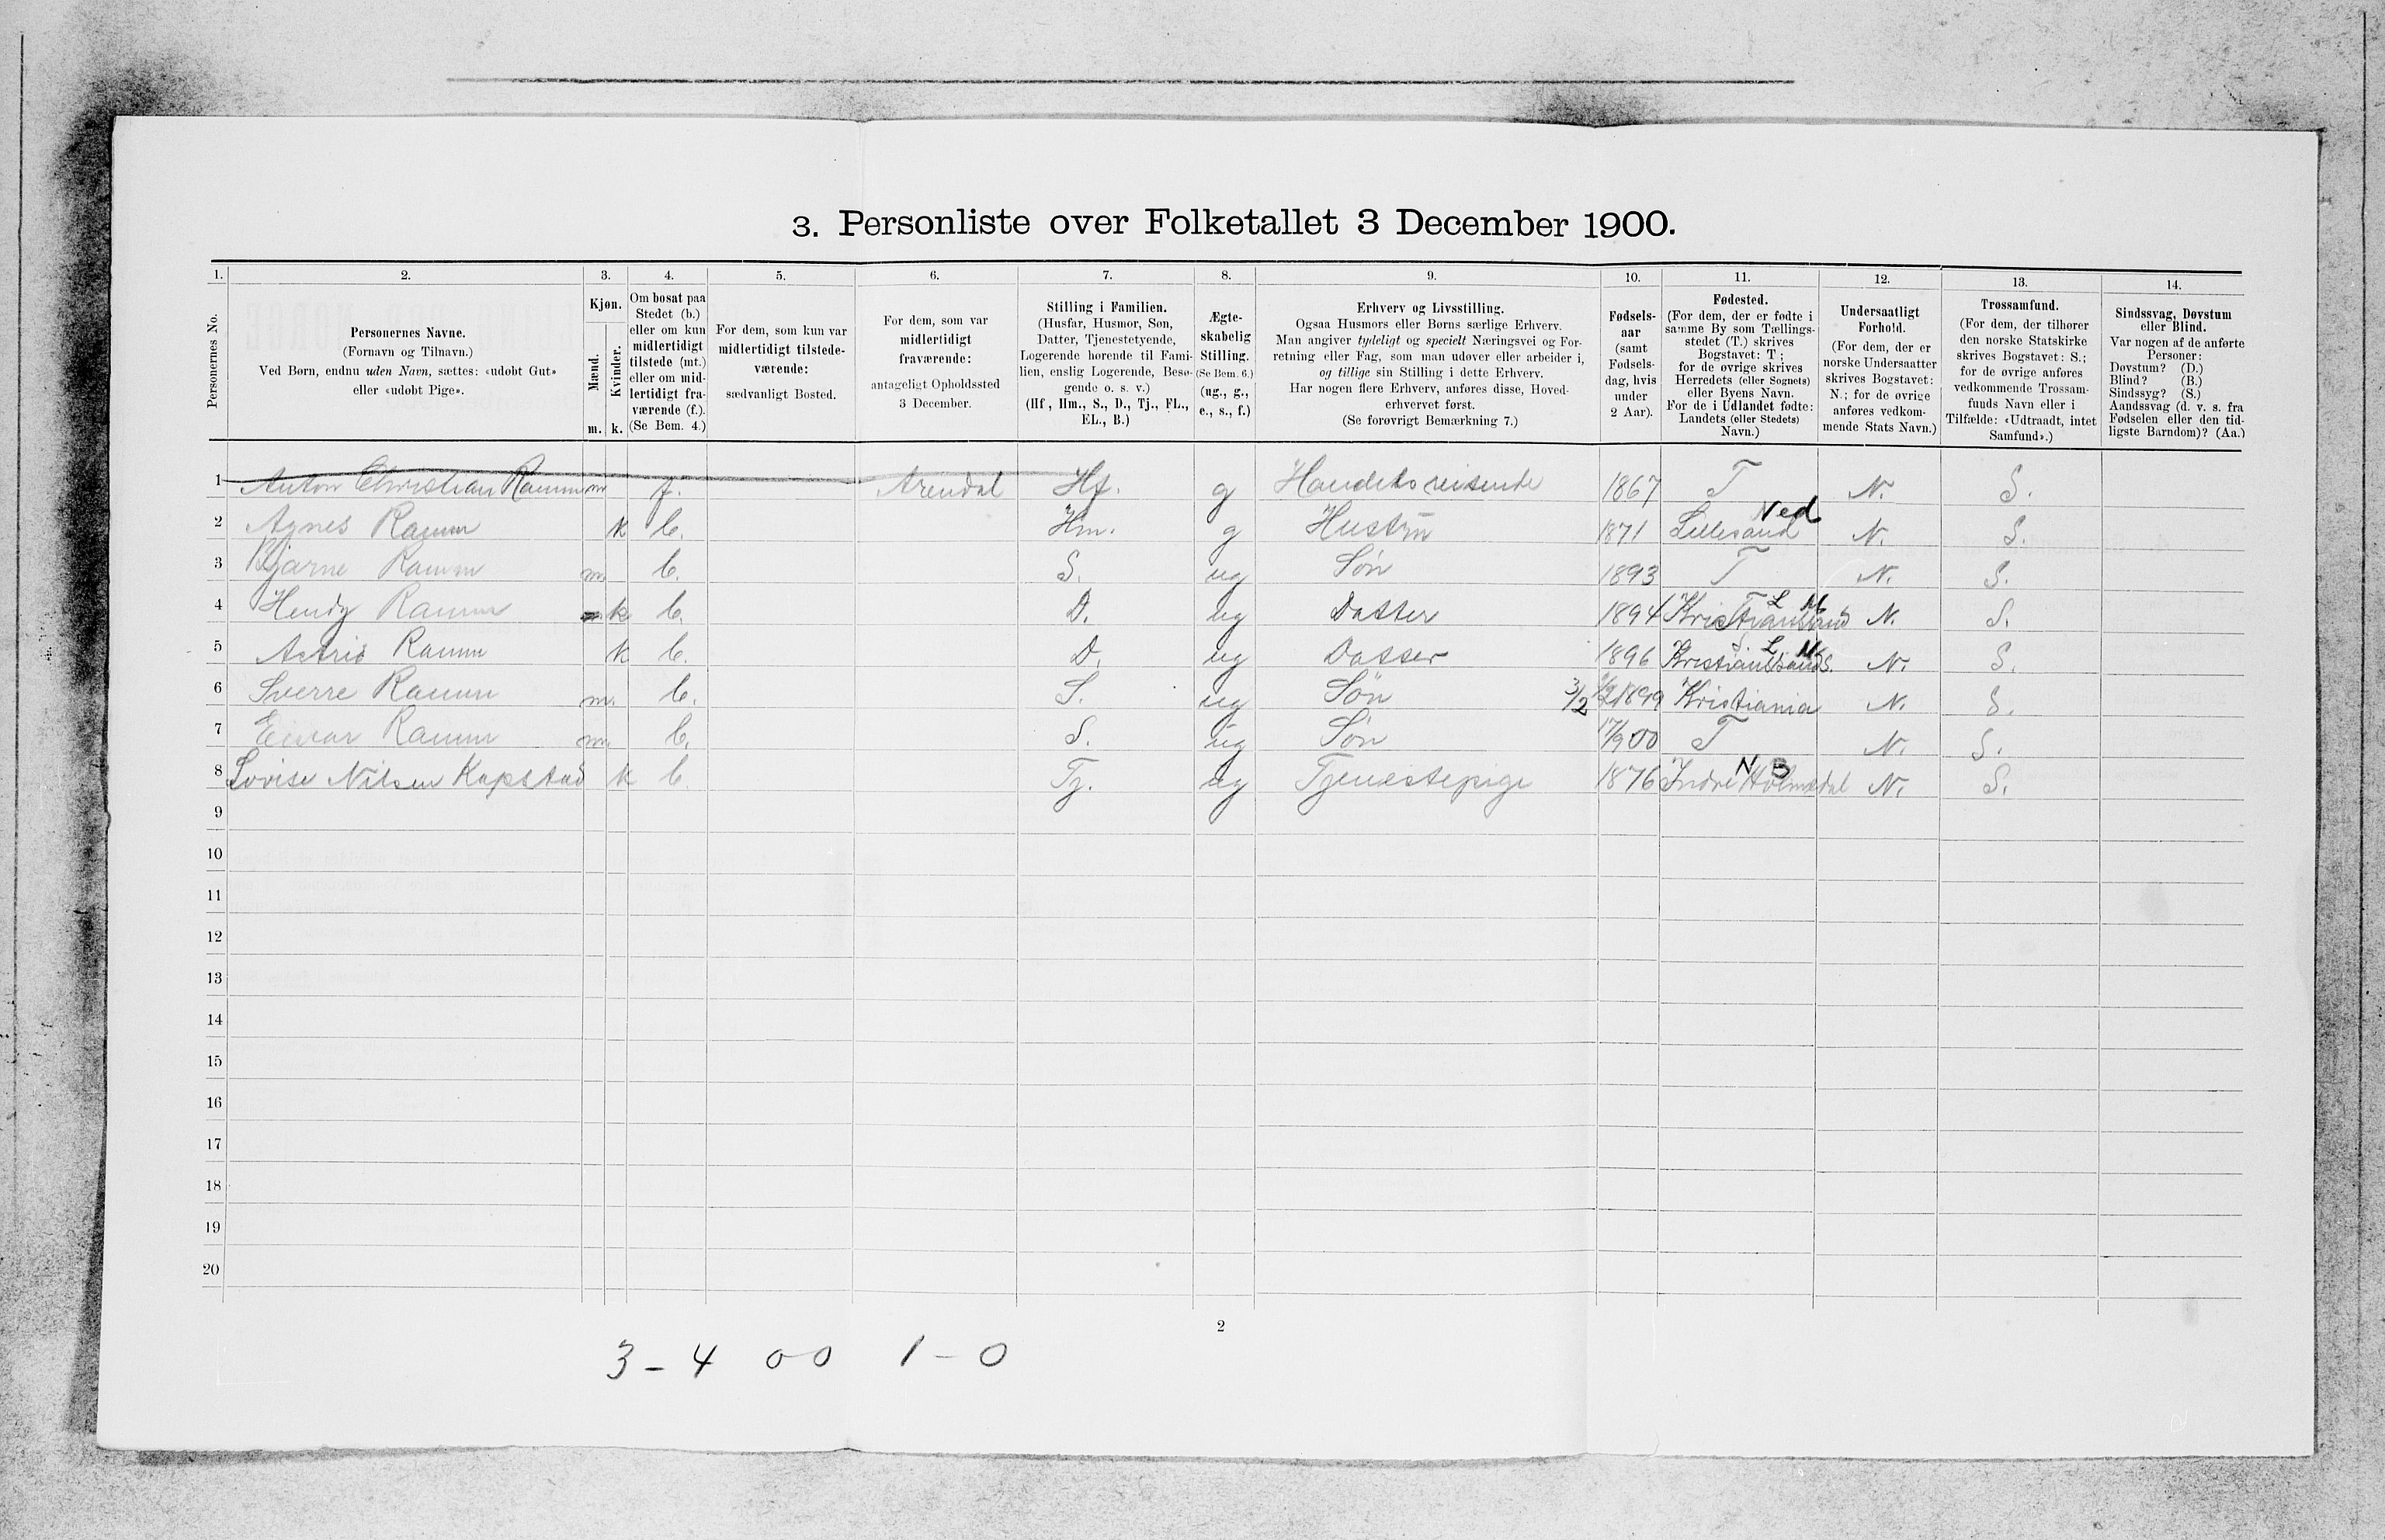 3. Personliste over Folketallet 3 December 1900.
1. 2. 3. 4. 5. 6. 7. 8. 9. 10. 11. 12. 13. 14.
Personernes No.
Personernes Navne.
(Fornavn og Tilnavn.)
Ved Børn, endnu uden Navn, sættes: «udøbt Gut»
eller «udøbt Pige».
Kjøn.
Mænd.
m.
Kvinder.
k.
Om bosat paa
Stedet (b.)
eller om kun
midlertidigt
tilstede (mt.)
eller om mid-
lertidigt fra-
værende (f.).
(Se Bem. 4.)
For dem, som kun var
midlertidigt tilstede-
værende:
sædvanligt Bosted.
For dem, som var
midlertidigt
fraværende:
antageligt Opholdssted
3 December.
Stilling i Familien.
(Husfar, Husmor, Søn,
Datter, Tjenestetyende,
Logerende hørende til Fami-
lien, enslig Logerende, Besø-
gende o. s. v.)
(Hf, Hm., S., D., Tj., FL.,
EL., B.)
Ægte-
skabelig
Stilling.
(Se Bem. 6.)
(ug., g.,
e., s., f.)
Erhverv og Livsstilling.
Ogsaa Husmors eller Børns særlige Erhverv.
Man angiver tydeligt og specielt Næringsvei og For-
retning eller Fag, som man udøver eller arbeider i,
og tillige sin Stilling i dette Erhverv.
Har nogen flere Erhverv, anføres disse, Hoved-
erhvervet først.
(Se forøvrigt Bemærkning 7.)
Fødsels-
aar
(samt
Fødsels-
dag, hvis
under
2 Aar).
Fødested.
(For dem, der er fødte i
samme By som Tællings-
stedet (T.) skrives
Bogstavet: T;
for de øvrige skrives
Herredets (eller Sognets)
eller Byens Navn.
For de i Udlandet fødte:
Landets (eller Stedets)
Navn.)
Undersaatligt
Forhold.
(For dem, der er
norske Undersaatter
skrives Bogstavet:
N.; for de øvrige
anføres vedkom-
mende Stats Navn.)
Trossamfund.
(For dem, der tilhører
den norske Statskirke
skrives Bogstavet: S.;
for de øvrige anføres
vedkommende Trossam-
funds Navn eller i
Tilfælde: «Udtraadt, intet
Samfund».)
Sindssvag, Døvstum
eller Blind.
Var nogen af de anførte
Personer:
Døvstum? (D.)
Blind? (B.)
Sindssyg? (S.)
Aandssvag (d. v. s. fra
Fødselen eller den tid-
ligste Barndom)? (Aa.)
1 Anton Christian Ramm m f. Arendal Hf. g Handelsreisende 1867 T N. S.
2 Agnes Ramm k b. Hm. g Hustru 1871 Lillesand Ned N. S.
3 Bjarne Ramm m. b. S. ug Søn 1893 T N. S.
4 Ramm k b. D. ug Datter 1894 Kristiansand L M N. S.
5 Astrid Ramm k b. D. ug Datter 1896 Kristiansands. L M N. S.
6 Sverre Ramm m. b. S. ug Søn 3/2 1899 Kristiania N. S.
7 Ramm m. b. S. ug Søn 17/9 00 T N. S.
8 Lovise Nilsen Kapstad k b. Tj. ug Tjenestepige 1876 Indre Holmedal N B N. S.
9
10
11
12
13
14
15
16
17
18
19
20
2
3 - 4 0 0 1 - 0